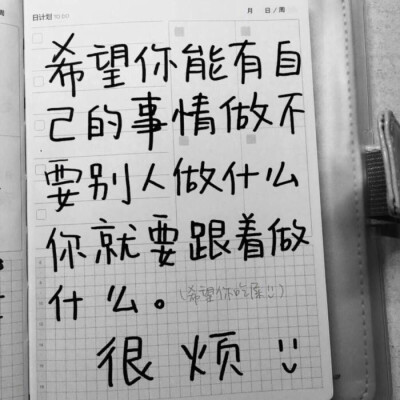 日计划 TO DO
月 日／周
希望你能有自
己的事情做不
要别人做什么
你就要跟着做
什么。
(希望你吃屎!!)
很烦